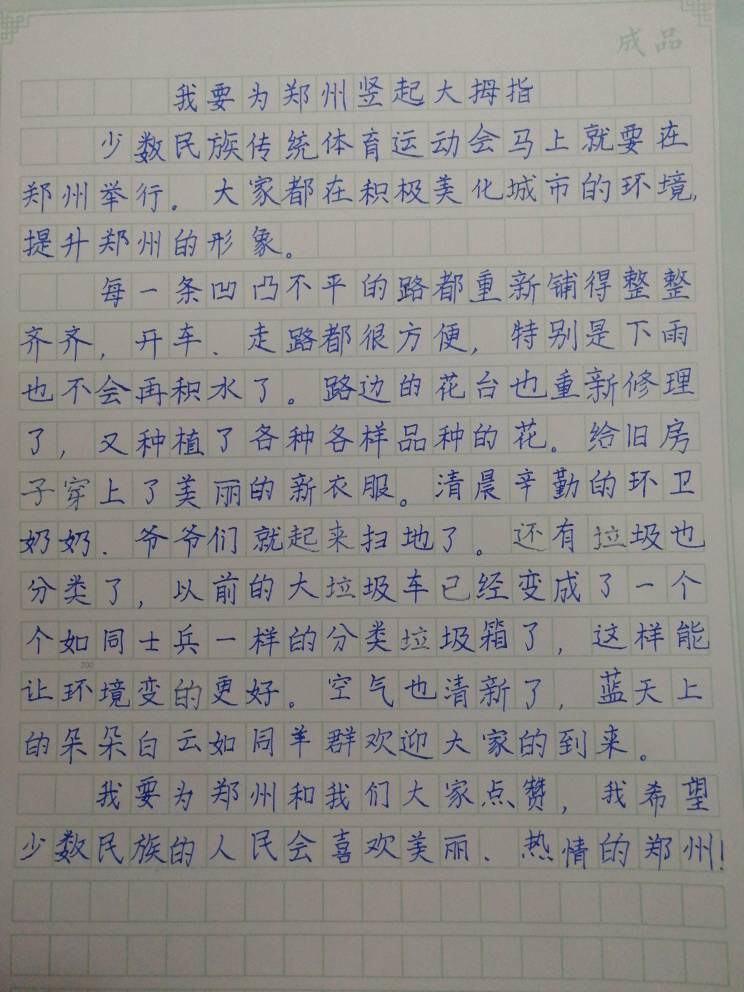 成品
我要为郑州竖起大拇指
少数民族传统体育运动会马上就要在
郑州举行。大家都在积极美化城市的环境,
提升郑州的形象。
每一条凹凸不平的路都重新铺得整整
齐齐，开车、走路都很方便，特别是下雨
也不会再积水了。路边的花台也重新修理
了，又种植了各种各样品种的花。给旧房
子穿上了美丽的新衣服。清晨辛勤的环卫
奶奶、爷爷们就起来扫地了。还有垃圾也
分类了，以前的大垃圾车已经变成了一个
个如同士兵一样的分类垃圾箱了，这样能
200
让环境变的更好。空气也清新了，蓝天上
的朵朵白云如同羊群欢迎大家的到来。
我要为郑州和我们大家点赞，我希望
少数民族的人民会喜欢美丽、热情的郑州!